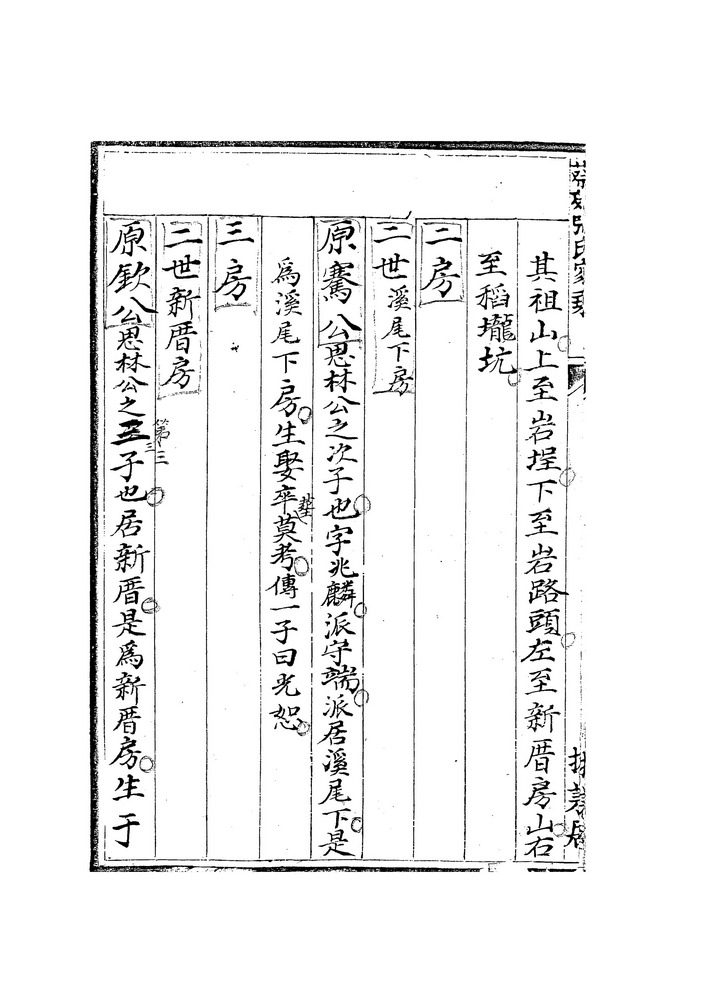 其祖山上至岩埕下至岩路頭左至新厝房山右
至稻壠坑
二房
二世溪尾下房
原騫公思林公之次子也字兆麟派守端派居溪尾下是
為溪尾下房生娶卒葬莫考傳一子曰光恕
三房
二世新厝房
原欽公思林公之第三子也居新厝是為新厝房生于